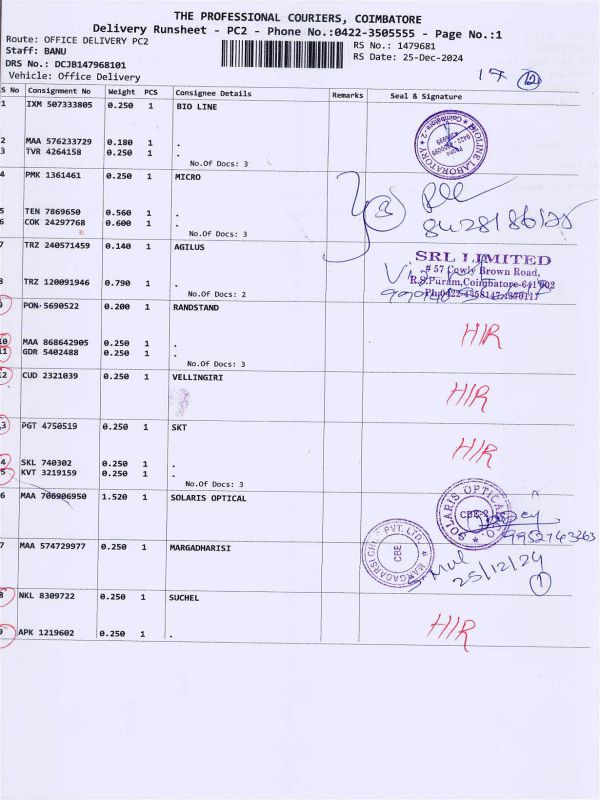 THE PROFESSIONAL COURIERS, COIMBATORE
Delivery Runsheet - PC2 - Phone No.:0422-3505555 - Page No.:1
Route: OFFICE DELIVERY PC2
RS No.: 1479681
Staff: BANU
RS Date: 25-Dec-2024
DRS No.: DCJB147968101
Vehicle: Office Delivery
17 12
S No Consignment No Weight PCS Consignee Details Remarks Seal & Signature
1 IXM 507333805 0.250 1 BIO LINE
2 MAA 576233729 0.180 1 .
3 TVR 4264158 0.250 1 .
No.Of Docs: 3
BIOLINE LABORATORY
Coimbatore - 2
4 PMK 1361461 0.250 1 MICRO
5 TEN 7869650 0.560 1 .
6 COK 24297768 0.600 1 .
No.Of Docs: 3
3
7 TRZ 240571459 0.140 1 AGILUS
8 TRZ 120091946 0.790 1 .
No.Of Docs: 2
SRL LIMITED
# 57 Cowly Brown Road,
R.S.Puram, Coimbatore-641 002
9 PON 5690522 0.200 1 RANDSTAND
10 MAA 868642905 0.250 1 .
11 GDR 5402488 0.250 1 .
No.Of Docs: 3
HIR
12 CUD 2321039 0.250 1 VELLINGIRI
HIR
3 PGT 4750519 0.250 1 SKT
4 SKL 740302 0.250 1 .
5 KVT 3219159 0.250 1 .
No.Of Docs: 3
HIR
6 MAA 706906950 1.520 1 SOLARIS OPTICAL
SOLARIS OPTICAL CO.
CBE-2
9952743263
7 MAA 574729977 0.250 1 MARGADHARISI
MARGADARSI CHITS PVT. LTD.
CBE
25/12/24
1
8 NKL 8309722 0.250 1 SUCHEL
9 APK 1219602 0.250 1 .
HIR